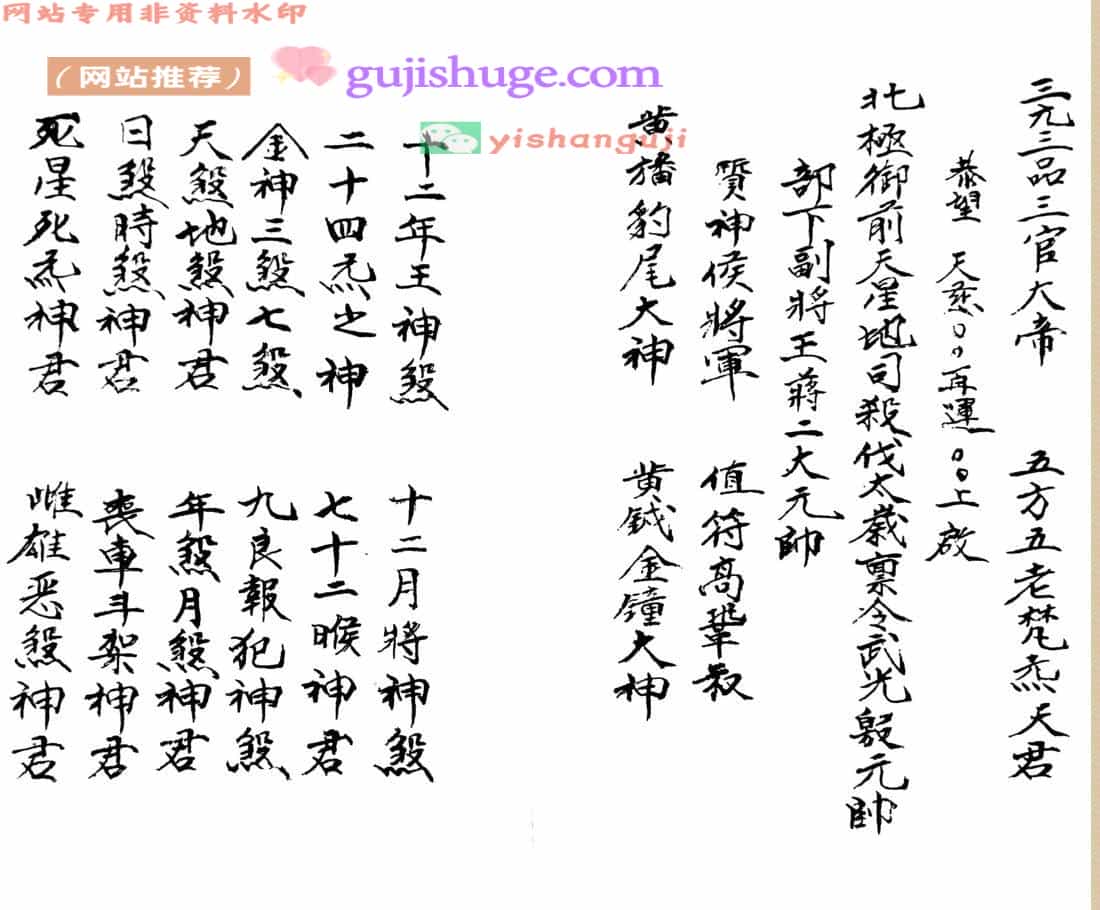 网站专用非资料水印
(网站推荐)
gujishuge.com
yishanguji
三九三品三官大帝 五方五老梵炁天君
恭望 天慈○○再運○○上啟
北極御前天星地司殺伐太歲稟令武光殷元帥
部下副將王蔣二大元帥
質神侯將軍 值符高鞏叔
黄旛豹尾大神 黄鉞金鐘大神
十二年王神煞 十二月將神煞
二十四炁之神 七十二睺神君
金神三煞七煞 九良報犯神煞
天煞地煞神君 年煞月煞神君
日煞時煞神君 喪車斗桀神君
死星死炁神君 雌雄恶煞神君